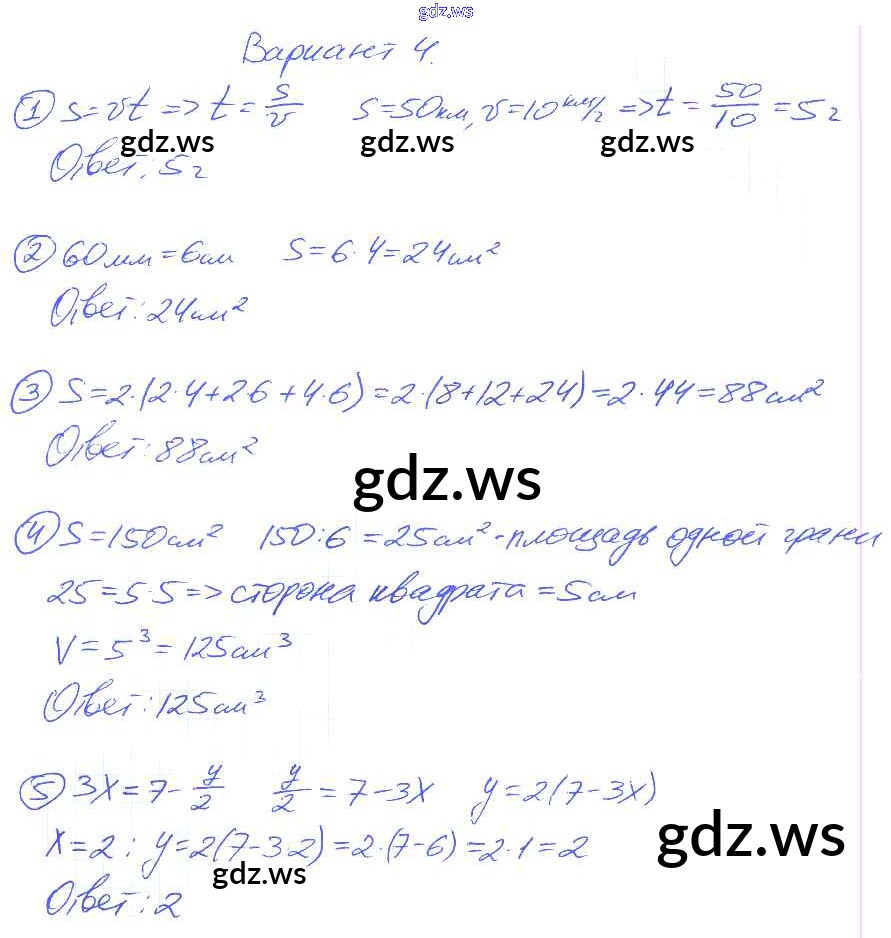 gdz.ws
Вариант 4.
① S=vt => t = s/v   S=50км, v=10 км/г => t = 50/10 = 5г
gdz.ws gdz.ws gdz.ws
Ответ: 5г
② 60мм=6см   S=6·4=24см²
Ответ: 24см²
③ S=2·(2·4+2·6+4·6)=2·(8+12+24)=2·44=88см²
Ответ: 88см²
gdz.ws
④ S=150см²   150:6=25см² - площадь одной грани
25=5·5=> сторона квадрата =5см
V=5³=125см³
Ответ: 125см³
⑤ 3x=7-y/2   y/2=7-3x   y=2(7-3x)
gdz.ws
x=2: y=2(7-3·2)=2·(7-6)=2·1=2
gdz.ws
Ответ: 2